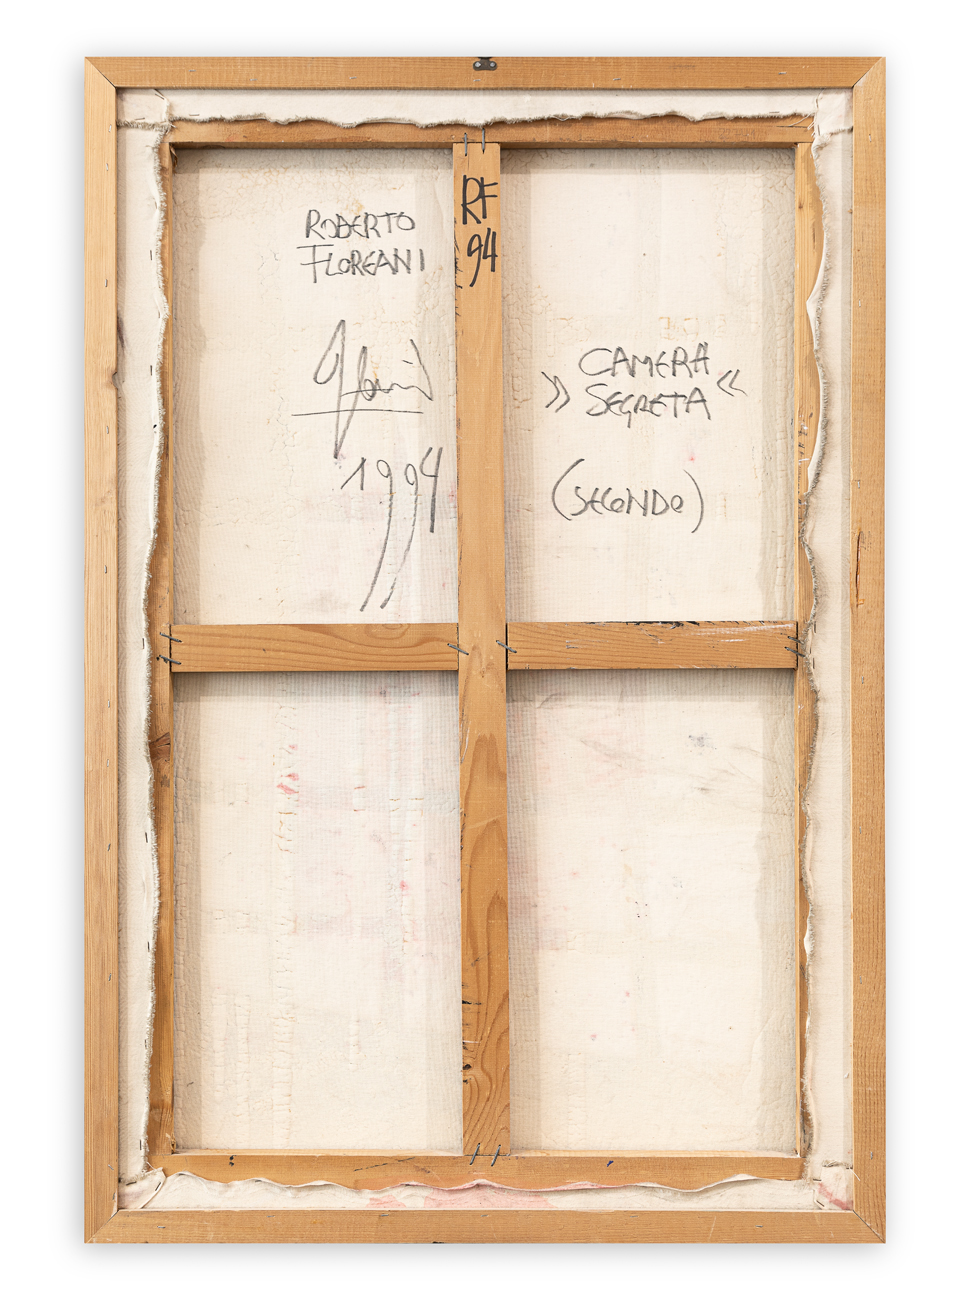 ROBERTO
FLOREANI
1994
RF
94
»CAMERA
SEGRETA«
(SECONDO)